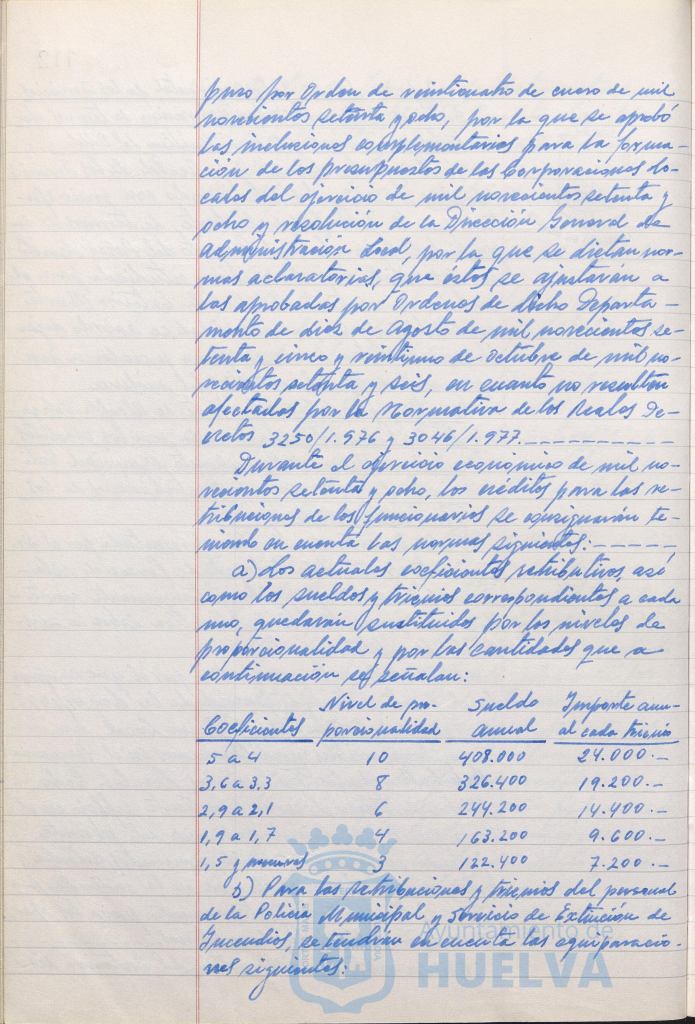 puso por Orden de veinticuatro de enero de mil
novecientos setenta y ocho, por la que se aprobó
las inclusiones complementarias para la forma-
ción de los presupuestos de las Corporaciones Lo-
cales del ejercicio de mil novecientos setenta y
ocho y resolución de la Dirección General de
Administración Local, por la que se dictan nor-
mas aclaratorias, que éstos se ajustarán a
las aprobadas por Ordenes de dicho Departa-
mento de diez de Agosto de mil novecientos se-
tenta y cinco y veintiuno de octubre de mil no-
vecientos setenta y seis, en cuanto no resulten
afectados por la Normativa de los Reales De-
cretos 3250/1.976 y 3046/1.977.----------
Durante el ejercicio económico de mil no-
vecientos setenta y ocho, los créditos para las re-
tribuciones de los funcionarios se consignarán te-
niendo en cuenta las normas siguientes:-----
a) Los actuales coeficientes retributivos, así
como los sueldos y trienios correspondientes a cada
uno, quedarán sustituidos por los niveles de
proporcionalidad y por las cantidades que a
continuación se señalan:
Coeficientes Nivel de pro-porcionalidad Sueldo anual Importe anu-al cada trienio
5 a 4 10 408.000 24.000.-
3,6 a 3,3 8 326.400 19.200.-
2,9 a 2,1 6 244.200 14.400.-
1,9 a 1,7 4 163.200 9.600.-
1,5 y menores 3 122.400 7.200.-
b) Para las retribuciones y trienios del personal
de la Policía Municipal y Servicio de Extinción de
Incendios, se tendrán en cuenta las equiparacio-
nes siguientes:
Ayuntamiento de
HUELVA